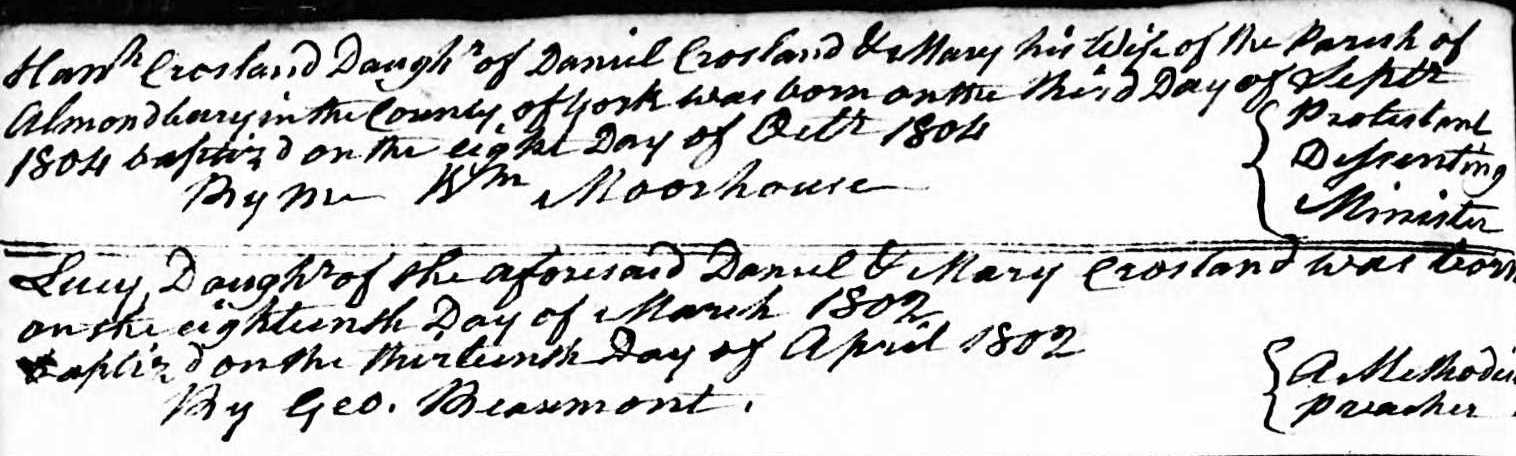 Hanh Crosland Daughr of Daniel Crosland & Mary his Wife of the Parish of
Almondbury in the County of York was born on the third Day of Septr
1804 baptiz'd on the eight Day of Octr 1804
By me Wm Moorhouse
Protestant
Dissenting
Minister
Lucy Daughr of the aforesaid Daniel & Mary Crosland was born
on the eighteenth Day of March 1802
baptiz'd on the thirteenth Day of April 1802
By Geo. Beaumont.
A Methodis
Preacher